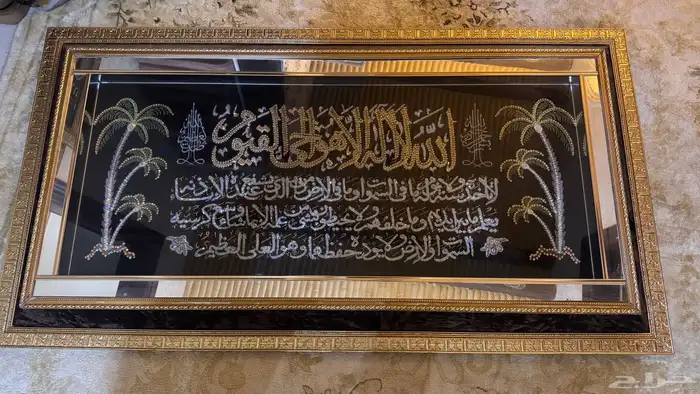 الله لا إله إلا هو الحي القيوم
لا تأخذه سنة ولا نوم له ما في السموات وما في الأرض من ذا الذي يشفع عنده إلا بإذنه
يعلم ما بين أيديهم وما خلفهم ولا يحيطون بشيء من علمه إلا بما شاء وسع كرسيه
السموات والأرض ولا يؤده حفظهما وهو العلي العظيم
حراج